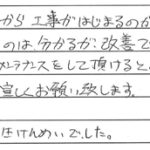 から工事がはじまるのか
のは分かるが、改善で
メンテナンスをして頂けると
宜しくお願い致します。
圧けんめいでした。